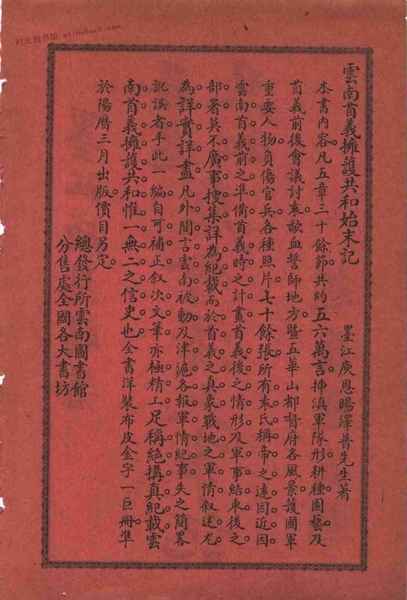 雲南首義擁護共和始末記
墨江庾恩暘澤普先生著
本書內容凡五章三十餘節共約五六萬言插滇軍隊形耕種園藝及
首義前後會議討袁歃血誓師地方暨五華山都督府各風景護國軍
重要人物負傷官兵各種照片七十餘張所有袁氏稱帝之遠因近因
雲南首義前之準備首義時之計畫首義後之情形及軍事結束後之
部署莫不廣事搜集詳為紀載而於首義之真象戰地之軍情叙述尤
為詳實詳盡凡外間言雲南被動及津滬各報軍情紀事失之簡畧
訛誤者手此一編自可補正叙次文筆亦極精工足稱絕搆真紀載雲
南首義擁護共和惟一無二之信史也全書洋裝布皮金字一巨冊準
於陽曆三月出版價目另定
總發行所雲南圖書館
分售處全國各大書坊